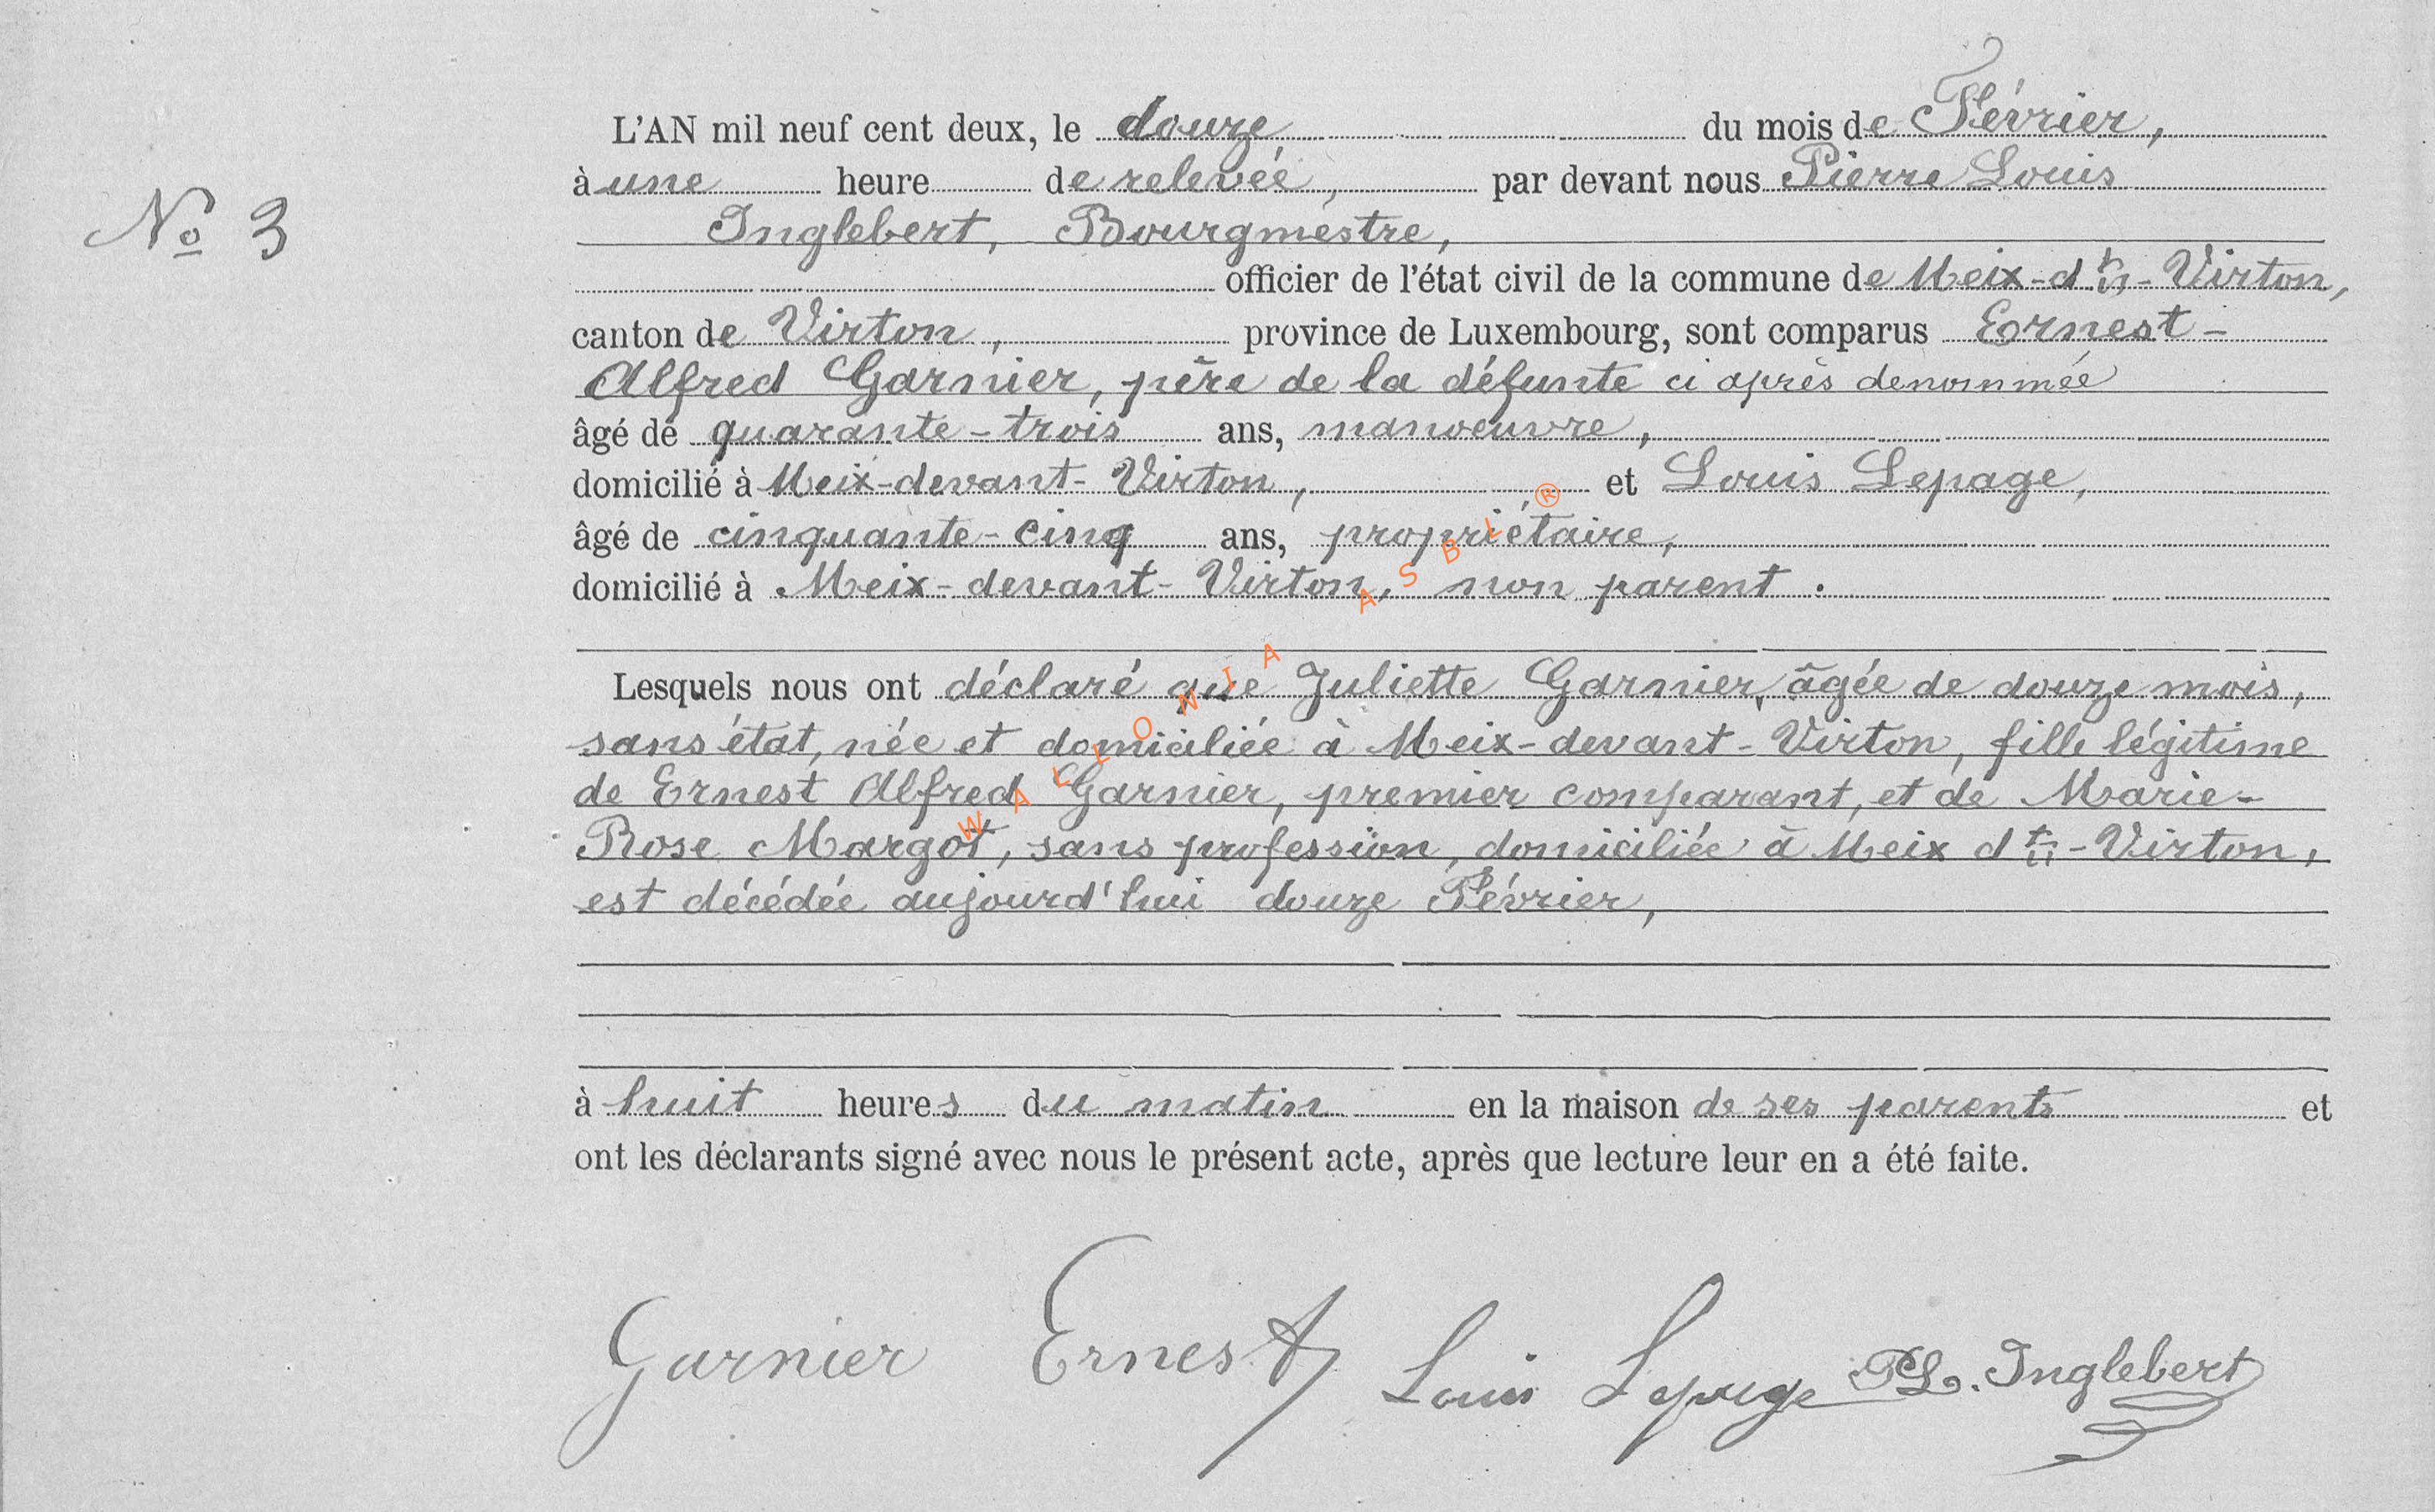 L'AN mil neuf cent deux, le douze du mois de Février,
à une heure de relevée, par devant nous Pierre Louis
Nº 3
Inglebert, Bourgmestre,
officier de l'état civil de la commune de Meix-dt-Virton,
canton de Virton, province de Luxembourg, sont comparus Ernest-
Alfred Garnier, père de la défunte ci après denommée
âgé de quarante-trois ans, manoeuvre,
domicilié à Meix-devant-Virton, et Louis Lepage,
âgé de cinquante-cinq ans, propriétaire,
domicilié à Meix-devant-Virton, non parent.
WALLONIA ASBL ®
Lesquels nous ont déclaré que Juliette Garnier, âgée de douze mois,
sans état, née et domiciliée à Meix-devant-Virton, fille légitime
de Ernest Alfred Garnier, premier comparant, et de Marie-
Rose Margot, sans profession, domiciliée à Meix dt-Virton,
est décédée aujourd'hui douze Février,
à huit heures du matin en la maison de ses parents et
ont les déclarants signé avec nous le présent acte, après que lecture leur en a été faite.
Garnier Ernest Louis Lepage PL. Inglebert